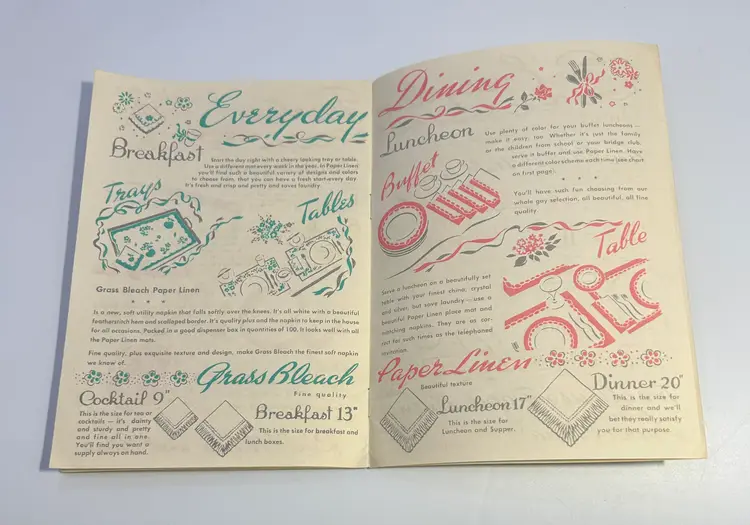 Everyday
Breakfast
Start the day right with a cheery looking tray or table.
Use a different one every week in the year. In Paper Linen
you'll find such a beautiful variety of designs and colors
to choose from, that you can have a fresh start-every day.
It's fresh and crisp and pretty and saves laundry.
Trays
Tables
Grass Bleach Paper Linen
Is a new, soft utility napkin that falls softly over the knees. It's all white with a beautiful
featherstitch hem and scalloped border. It's quality plus and the napkin to keep in the house
for all occasions. Packed in a good dispenser box in quantities of 100. It looks well with all
the Paper Linen mats.
Fine quality, plus exquisite texture and design, make Grass Bleach the finest soft napkin
we know of.
Grass Bleach
Fine quality
Cocktail 9"
This is the size for tea or
cocktails — it's dainty
and sturdy and pretty
and fine all in one.
You'll find you want a
supply always on hand.
Breakfast 13"
This is the size for breakfast and
lunch boxes.
Dining
Luncheon
Use plenty of color for your buffet luncheons —
make it easy, too. Whether it's just the family
or the children from school or your bridge club,
serve it buffet and use Paper Linen. Have
a different color scheme each time (see chart
on first page).
Buffet
You'll have such fun choosing from our
whole gay selection, all beautiful, all fine
quality
Table
Serve a luncheon on a beautifully set
table with your finest china, crystal
and silver, but save laundry — use a
beautiful Paper Linen place mat and
matching napkins. They are as cor-
rect for such times as the telephoned
invitation.
Paper Linen
Beautiful texture
Luncheon 17"
This is the size for
Luncheon and Supper.
Dinner 20"
This is the size for
dinner and we'll
bet they really satisfy
you for that purpose.